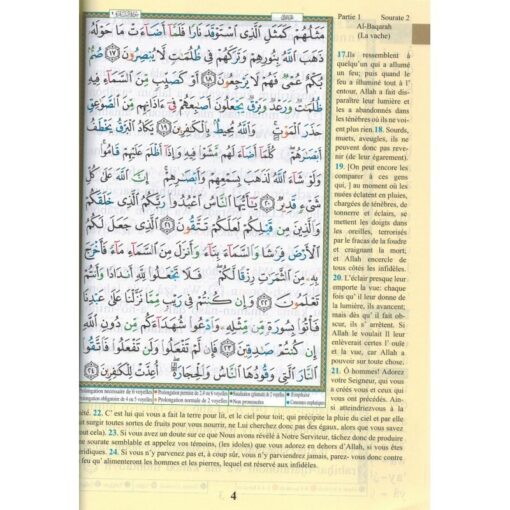 Partie 1 Sourate 2
Al-Baqarah
(La vache)
مَثَلُهُمْ كَمَثَلِ ٱلَّذِى ٱسْتَوْقَدَ نَارًا فَلَمَّآ أَضَآءَتْ مَا حَوْلَهُۥ
ذَهَبَ ٱللَّهُ بِنُورِهِمْ وَتَرَكَهُمْ فِى ظُلُمَٰتٍ لَّا يُبْصِرُونَ ١٧ صُمٌّۢ
بُكْمٌ عُمْىٌ فَهُمْ لَا يَرْجِعُونَ ١٨ أَوْ كَصَيِّبٍ مِّنَ ٱلسَّمَآءِ فِيهِ
ظُلُمَٰتٌ وَرَعْدٌ وَبَرْقٌ يَجْعَلُونَ أَصَٰبِعَهُمْ فِىٓ ءَاذَانِهِم مِّنَ ٱلصَّوَٰعِقِ
حَذَرَ ٱلْمَوْتِ وَٱللَّهُ مُحِيطٌۢ بِٱلْكَٰفِرِينَ ١٩ يَكَادُ ٱلْبَرْقُ يَخْطَفُ
أَبْصَٰرَهُمْ كُلَّمَآ أَضَآءَ لَهُم مَّشَوْا۟ فِيهِ وَإِذَآ أَظْلَمَ عَلَيْهِمْ قَامُوا۟
وَلَوْ شَآءَ ٱللَّهُ لَذَهَبَ بِسَمْعِهِمْ وَأَبْصَٰرِهِمْ إِنَّ ٱللَّهَ عَلَىٰ كُلِّ
شَىْءٍ قَدِيرٌ ٢٠ يَٰٓأَيُّهَا ٱلنَّاسُ ٱعْبُدُوا۟ رَبَّكُمُ ٱلَّذِى خَلَقَكُمْ
وَٱلَّذِينَ مِن قَبْلِكُمْ لَعَلَّكُمْ تَتَّقُونَ ٢١ ٱلَّذِى جَعَلَ لَكُمُ
ٱلْأَرْضَ فِرَٰشًا وَٱلسَّمَآءَ بِنَآءً وَأَنزَلَ مِنَ ٱلسَّمَآءِ مَآءً فَأَخْرَجَ
بِهِۦ مِنَ ٱلثَّمَرَٰتِ رِزْقًا لَّكُمْ فَلَا تَجْعَلُوا۟ لِلَّهِ أَندَادًا وَأَنتُمْ
تَعْلَمُونَ ٢٢ وَإِن كُنتُمْ فِى رَيْبٍ مِّمَّا نَزَّلْنَا عَلَىٰ عَبْدِنَا
فَأْتُوا۟ بِسُورَةٍ مِّن مِّثْلِهِۦ وَٱدْعُوا۟ شُهَدَآءَكُم مِّن دُونِ ٱللَّهِ
إِن كُنتُمْ صَٰدِقِينَ ٢٣ فَإِن لَّمْ تَفْعَلُوا۟ وَلَن تَفْعَلُوا۟ فَٱتَّقُوا۟
ٱلنَّارَ ٱلَّتِى وَقُودُهَا ٱلنَّاسُ وَٱلْحِجَارَةُ أُعِدَّتْ لِلْكَٰفِرِينَ ٢٤
17.Ils ressemblent à
quelqu'un qui a allumé
un feu; puis quand le
feu a illuminé tout à l'
entour, Allah a fait dis-
paraître leur lumière et
les a abandonnés dans
les ténèbres où ils ne voi-
ent plus rien.18. Sourds,
muets, aveugles, ils ne
peuvent donc pas reve-
nir (de leur égarement).
19. [On peut encore les
comparer à ces gens
qui, ] au moment où les
nuées éclatent en pluies,
chargées de ténèbres, de
tonnerre et éclairs, se
mettent les doigts dans
les oreilles, terrorisés
par le fracas de la foudre
et craignant la mort;
et Allah encercle de
tous côtés les infidèles.
20. L'éclair presque leur
emporte la vue: chaque
fois qu' il leur donne de
la lumière, ils avancent;
mais dès qu' il fait ob-
scur, ils s' arrêtent. Si
Allah le voulait Il leur
enlèverait certes l' ouïe
et la vue, car Allah a
pouvoir sur toute chose.
21. Ô hommes! Adorez
votre Seigneur, qui vous
a créés vous et ceux qui
vous ont précédés. Ain-
si atteindriez-vous à la
rolongation nécessaire de 6 voyelles Prolongation permise de 2,4 ou 6 voyelles Nasalisation (ghunnah) de 2 voyelles Emphatise
rolongation obligatoire de 4 ou 5 voyelles Prolongation normale de 2 voyelles Non prononcées Consonnes emphatiques
viété. 22. C' est lui qui vous a fait la terre pour lit, et le ciel pour toit; qui précipite la pluie du ciel et par elle
ait surgir toutes sortes de fruits pour vous nourrir, ne Lui cherchez donc pas des égaux, alors que vous savez
out cela). 23. Si vous avez un doute sur ce que Nous avons révélé à Notre Serviteur, tâchez donc de produire
ne sourate semblable et appelez vos témoins, (les idoles) que vous adorez en dehors d'Allah, si vous êtes
éridiques. 24. Si vous n'y parvenez pas et, à coup sûr, vous n'y parviendrez jamais, parez- vous donc contre
feu qu' alimenteront les hommes et les pierres, lequel est réservé aux infidèles.
4